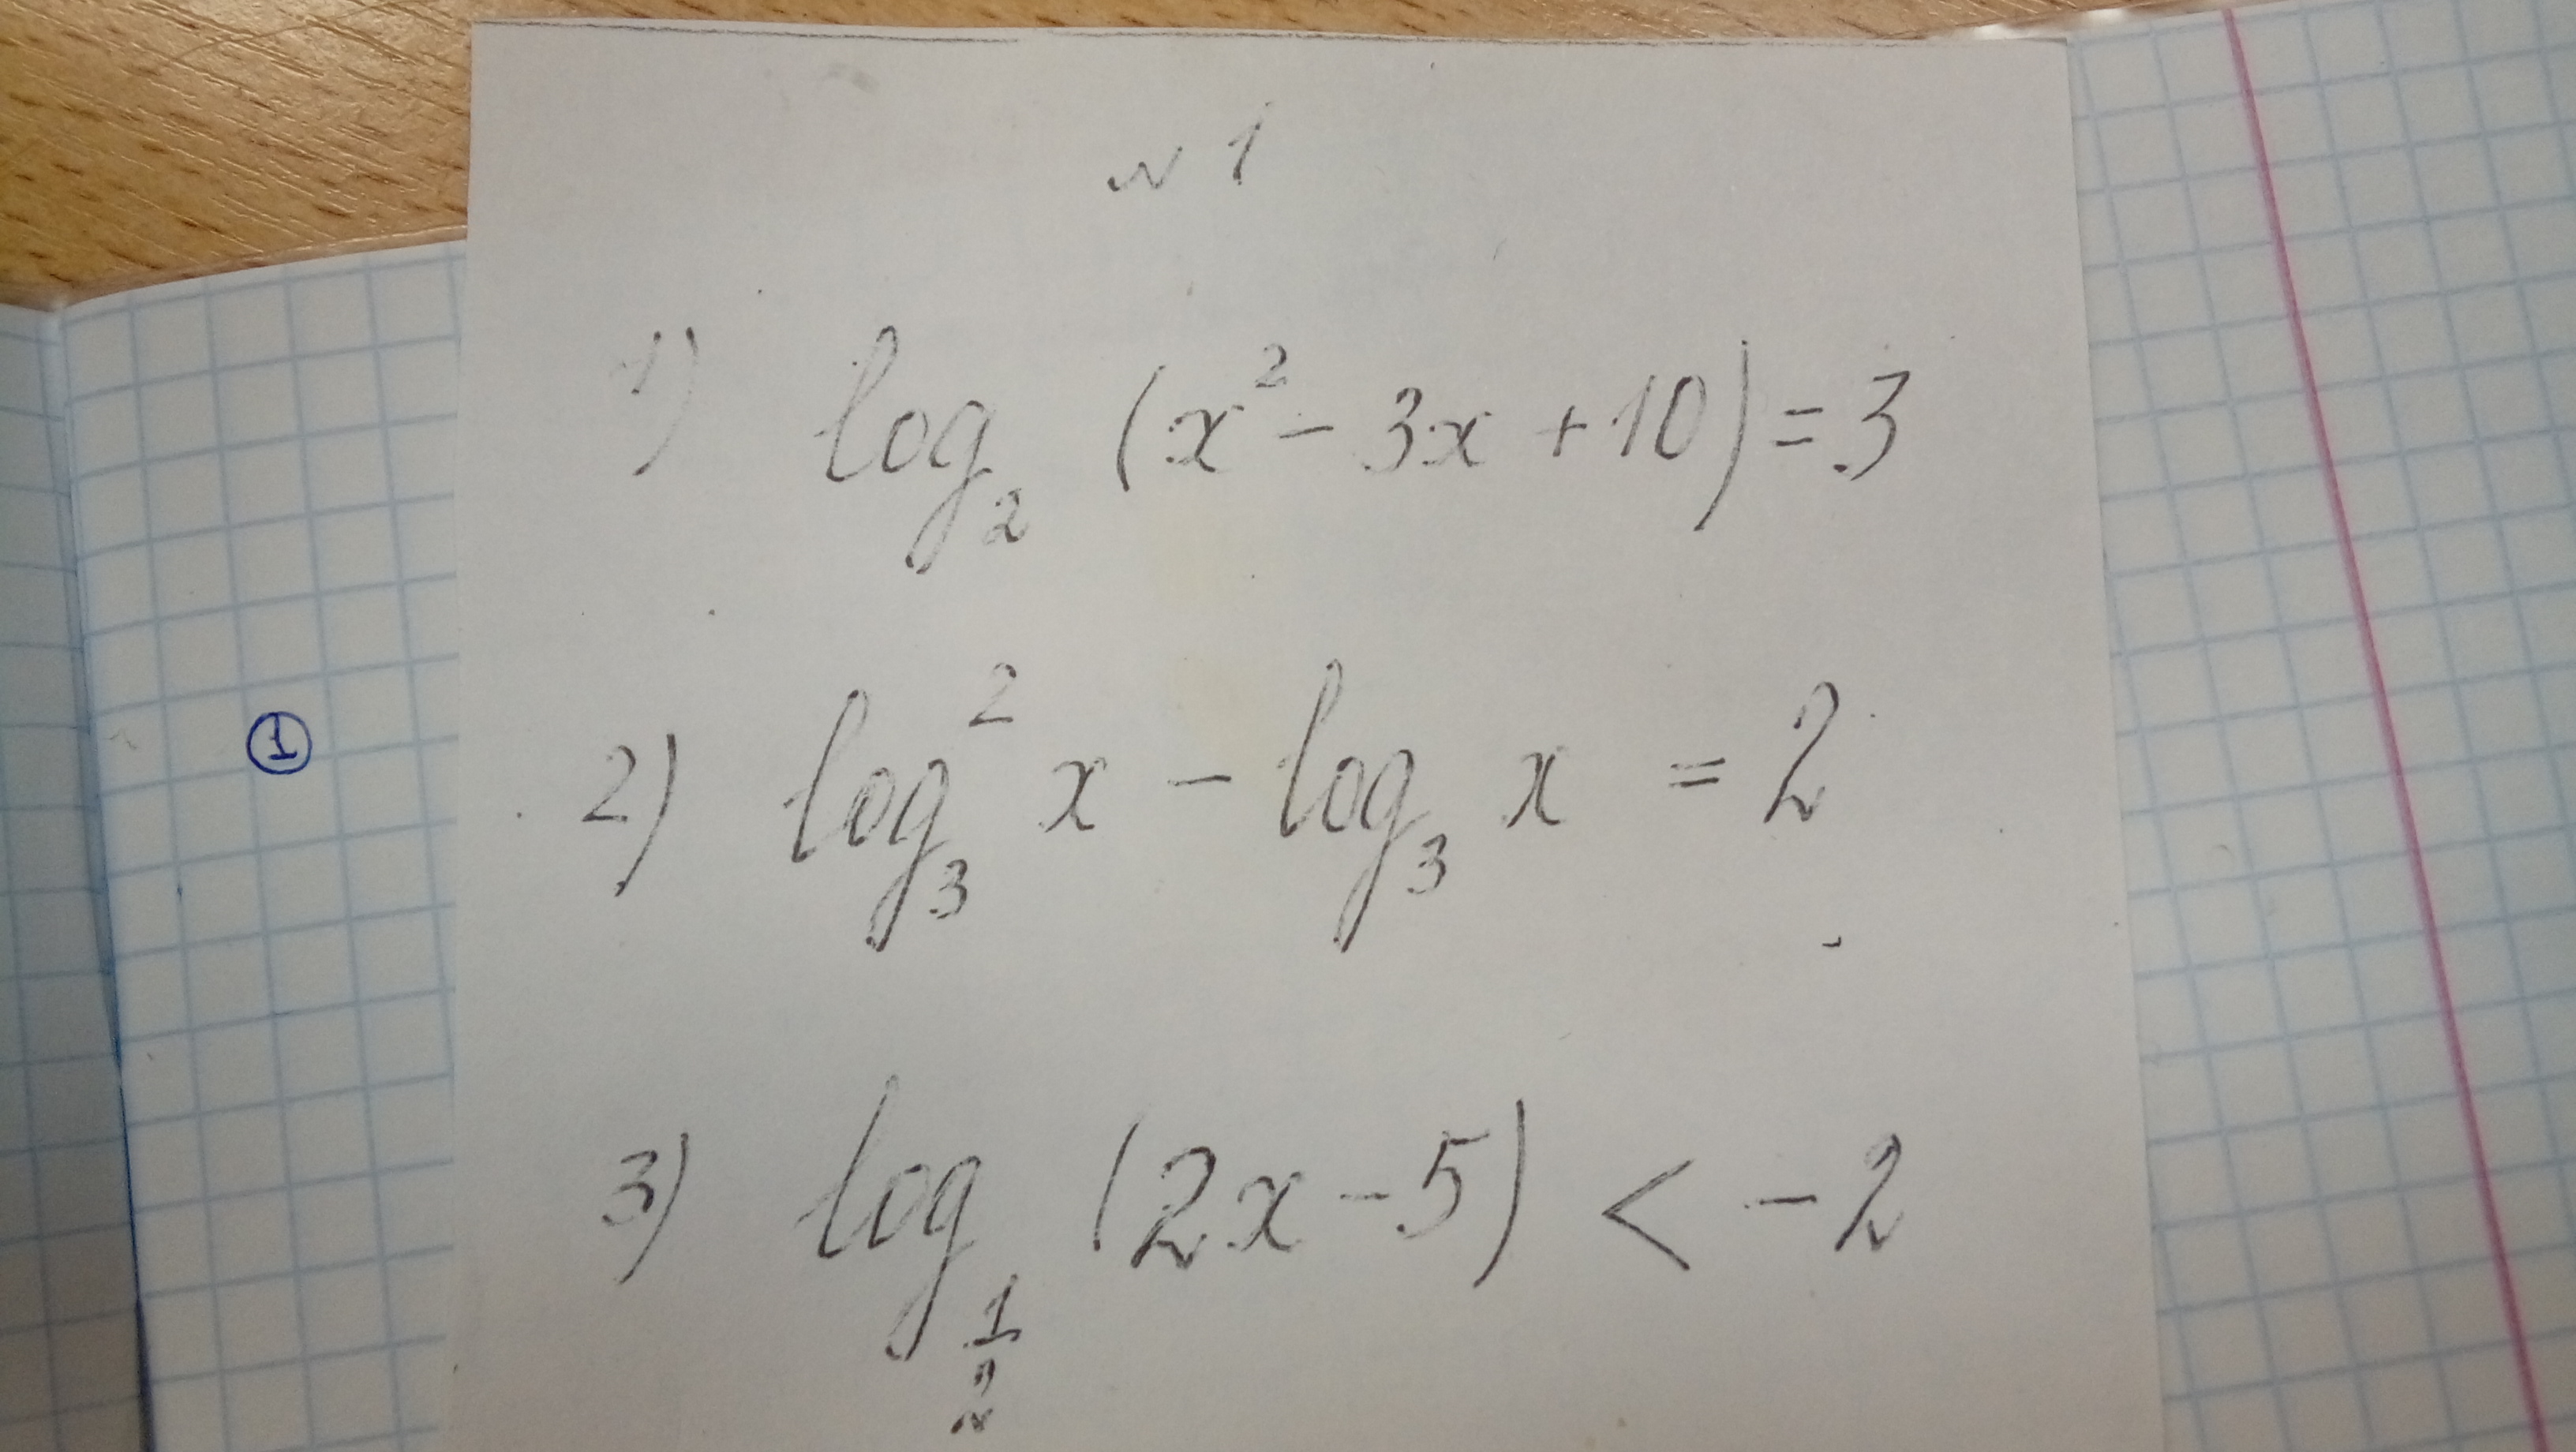 № 1
1) log₂ (x² - 3x + 10) = 3
①
2) log₃² x - log₃ x = 2
3) log_{1/2} (2x - 5) < -2